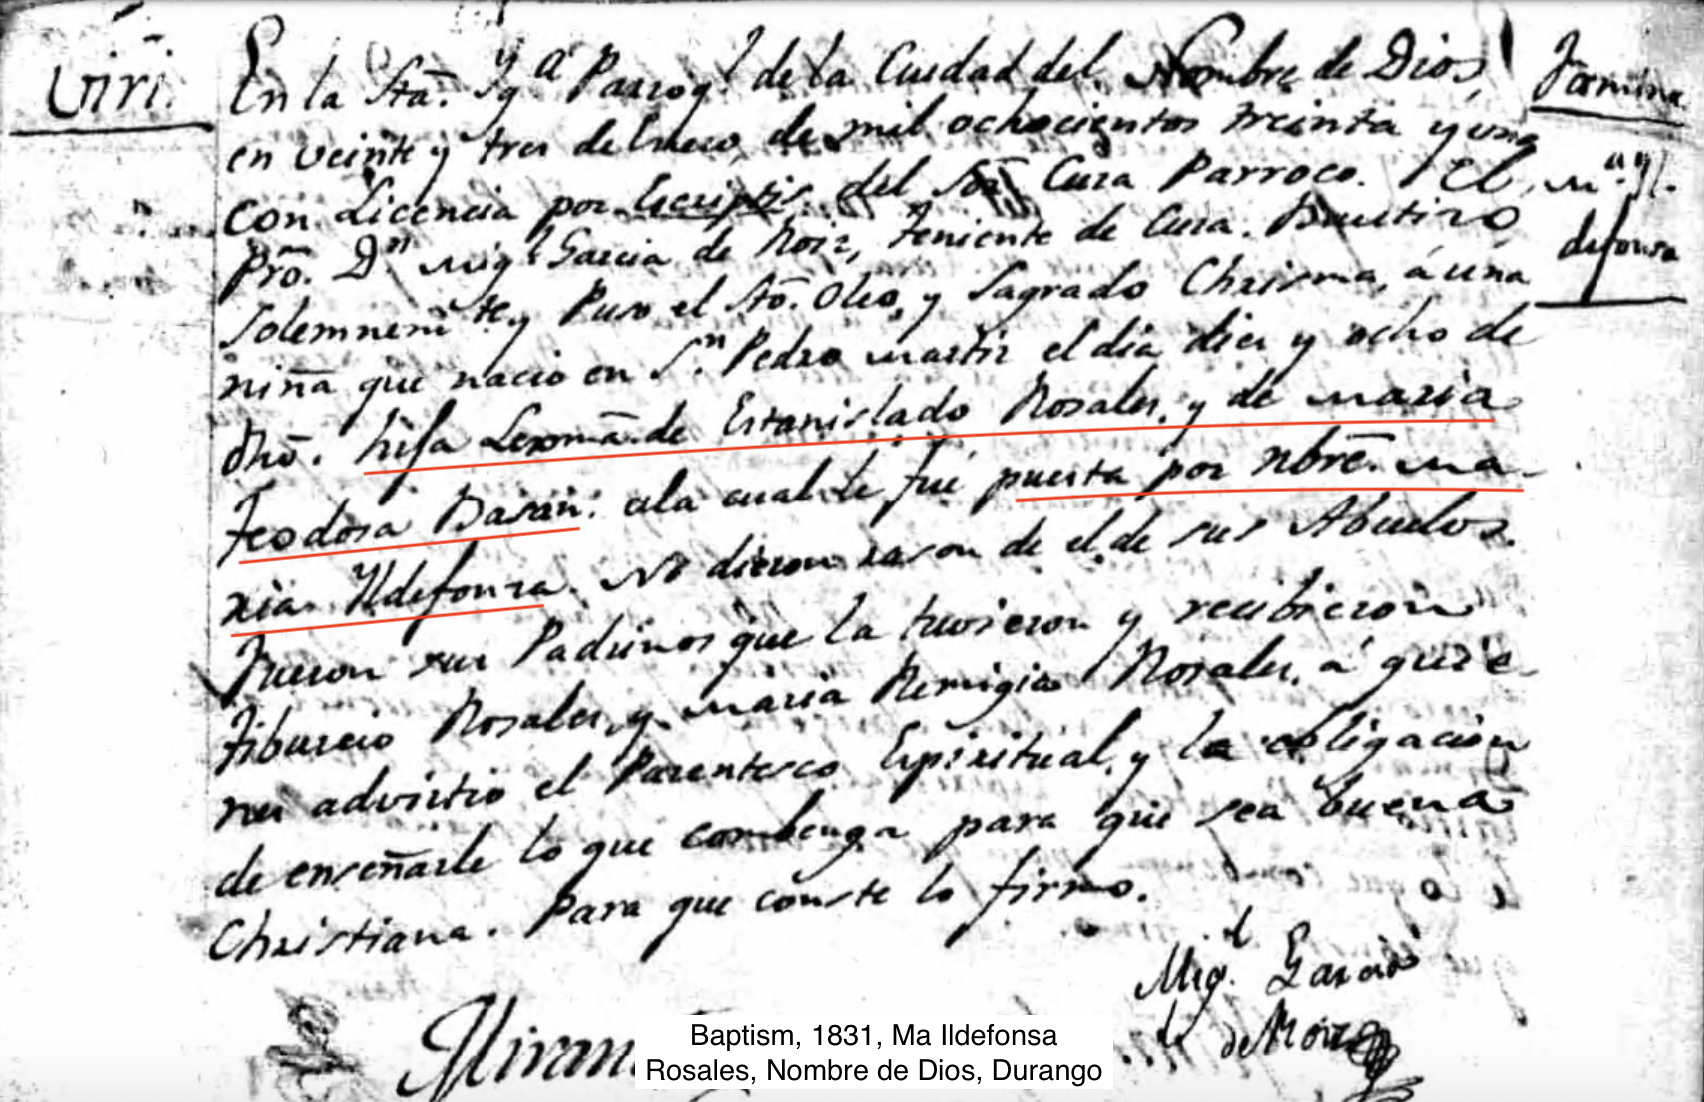 Viri.
En la Sta. Ygª Parroql de la Ciudad del Nombre de Dios,
en veinte y tres de Enero, de mil ochocientos treinta y uno
con Licencia por Escriptis. del Sor. Cura Parroco. El
Pro. Dn Migl Garcia de Noiz, Teniente de Cura. Bautizó
Solemnemte. y Puso el Sto. Oleo, y Sagrado Chrisma, á una
niña que nacio en Sn. Pedro martir el dia dies y ocho de
dho. hija Lexma. de Estanislado Rosales, y de maria
Teodosa Basan: ala cual le fué puesta por nbre. ma-
ria Yldefonza. No dieron rason de el de sus Abuelos.
Fueron sus Padrinos que la tuvieron y recibieron
Tiburcio Rosales, y maria Remigia Rosales, á quie-
nes advirtio el Parentesco Espiritual, y la obligación
de enseñarle lo que combenga para que sea buena
Christiana. Para que conste lo firmo.
Mª. Yl-
defonsa
Migl. Garcia
de Noiz
Baptism, 1831, Ma Ildefonsa
Rosales, Nombre de Dios, Durango